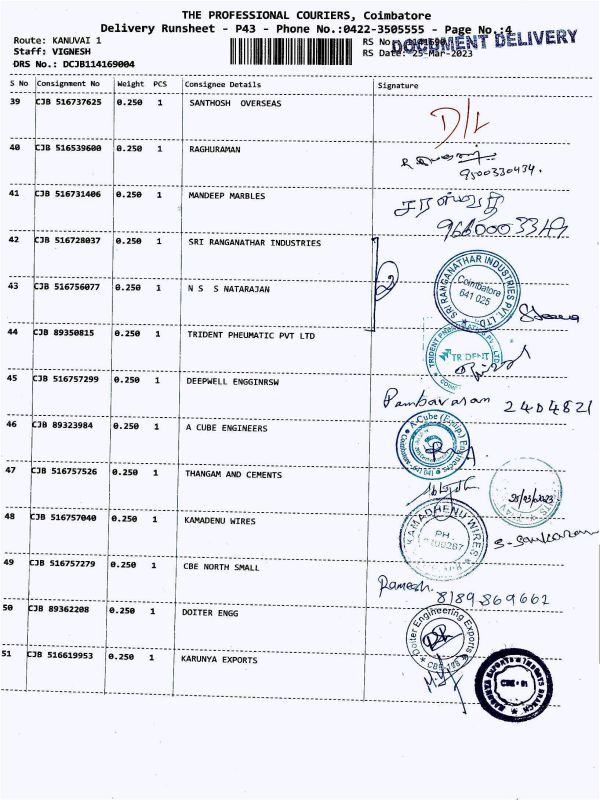 THE PROFESSIONAL COURIERS, Coimbatore
Delivery Runsheet - P43 - Phone No.:0422-3505555 - Page No.:4
Route: KANUVAI 1
RS No
DOCUMENT DELIVERY
Staff: VIGNESH
RS Date: 25-Mar-2023
DRS No.: DCJB114169004
S No Consignment No Weight PCS Consignee Details Signature
39 CJB 516737625 0.250 1 SANTHOSH OVERSEAS
D/L
40 CJB 516539600 0.250 1 RAGHURAMAN
9500330434.
41 CJB 516731406 0.250 1 MANDEEP MARBLES
சரஸ்வதி
42 CJB 516728037 0.250 1 SRI RANGANATHAR INDUSTRIES
SRI RANGANATHAR INDUSTRIES PVT. LTD
Coimbatore
641 025
43 CJB 516756077 0.250 1 N S S NATARAJAN
44 CJB 89350815 0.250 1 TRIDENT PHEUMATIC PVT LTD
TRIDENT
45 CJB 516757299 0.250 1 DEEPWELL ENGGINRSW
2404821
46 CJB 89323984 0.250 1 A CUBE ENGINEERS
A Cube (Equip.) Engineers
47 CJB 516757526 0.250 1 THANGAM AND CEMENTS
25/03/2023
48 CJB 516757040 0.250 1 KAMADENU WIRES
KAMADHENU WIRES
PH
S-Sankaran
49 CJB 516757279 0.250 1 CBE NORTH SMALL
Ramesh
8189869662
50 CJB 89362208 0.250 1 DOITER ENGG
Doiter Engineering Exports
51 CJB 516619953 0.250 1 KARUNYA EXPORTS
KARUNYA EXPORTS